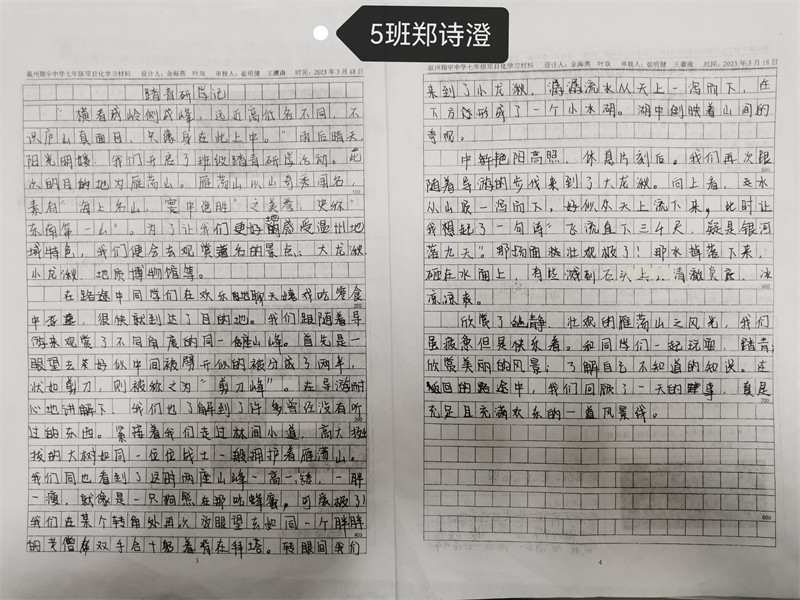 5班郑诗澄
温州翔宇中学七年级项目化学习材料 设计人：余海燕 叶双 审核人：崔明健 王雁南 时间：2023年3月18日
踏青研学记
“横看成岭侧成峰，远近高低各不同，不
识庐山真面目，只缘身在此山中。”雨后晴天
阳光明媚，我们开启了班级踏青研学活动。此
次的目的地为雁荡山。雁荡山以山奇秀闻名，
素有“海上名山，寰中绝胜”之美誉，史称“
东南第一山”。为了让我们更好的感受温州地
域特色，我们便会去观赏著名的景点：大龙湫
小龙湫 地质博物馆等。
在路途中同学们在欢乐地聊天嬉戏吃零食
中度过，很快就到达了目的地。我们跟随着导
游来观赏了不同角度的同一雄山峰。首先是一
眼望去来好似中间被劈开似的被分成了两半，
状如剪刀，则被称之为“剪刀峰”。在导游耐
心地讲解下，我们也了解到了许多曾经没有听
过的东西。紧接着我们走过林间小道，高大挺
拔的大树如同一位位战士一般拥护着雁荡山。
我们同也看到了这时两座山峰一高一矮，一胖
一瘦，就像是一只狗熊在那吃蜂蜜，可爱极了！
我们在某个转角处再次 眼望去如同一个胖胖
的老僧 双手合十躬着背在拜塔。转眼间我们
3
温州翔宇中学七年级项目化学习材料 设计人：余海燕 叶双 审核人：崔明健 王雁南 时间：2023年3月18日
来到了小龙湫，潺潺流水从天上一泻而下，在
下方形成了一个小水湖。湖中倒映着山间的
奇观。
中午艳阳高照，休息片刻后。我们再次跟
随着导游的步伐来到了大龙湫。向上看，水
从山顶一泻而下，好似从天上流下来，此时让
我想起了一句诗“飞流直下三千尺，疑是银河
落九天”。那场面 壮观极了！那水掉落下来，
砸在水面上，有些溅到石头上，清澈见底，冰
凉凉爽。
欣赏了幽静、壮观的雁荡山之风光，我们
虽疲惫但是快乐着。和同学们一起玩耍，踏青；
欣赏美丽的风景；了解自己不知道的知识。在
返回的路途中，我们回顾了一天的 事，真是
充足且充满欢乐的一道风景线。
4